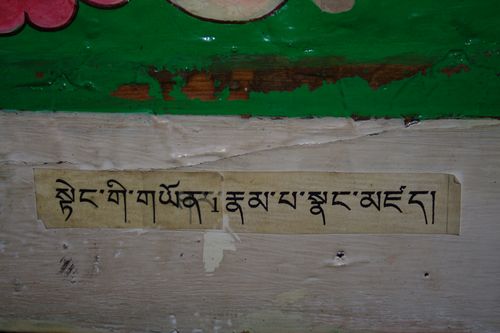 སྟེང་གི་གཡོན་1 རྣམ་པ་སྣང་མཛད།